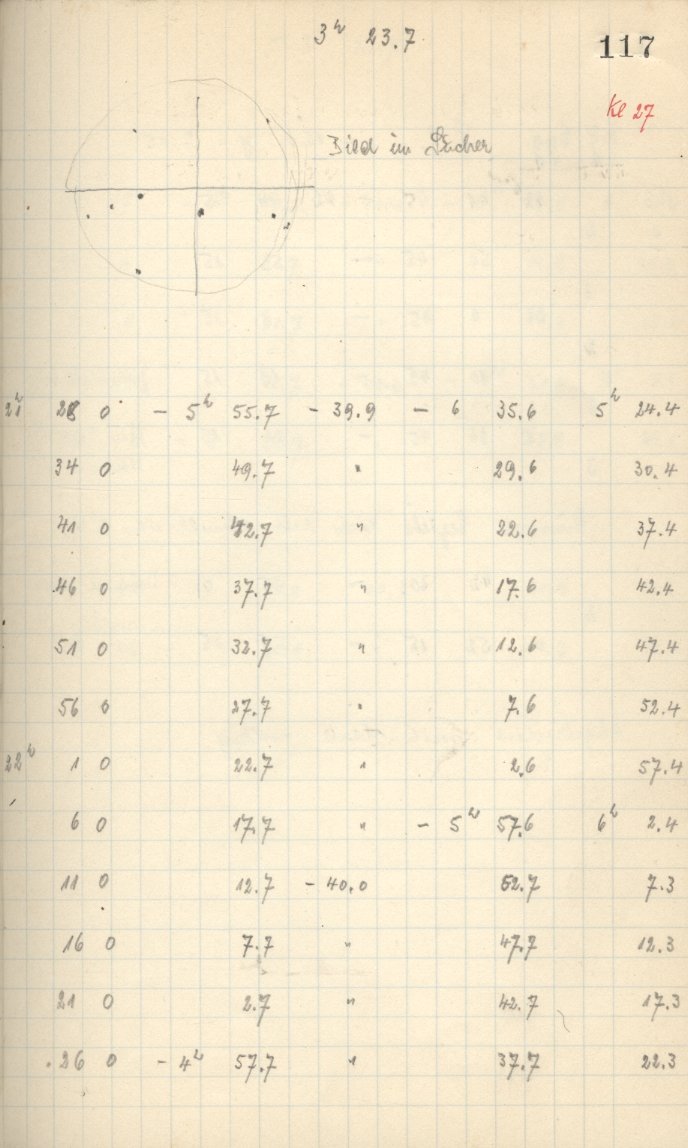 3ʰ 23.7
117
Kl 27
Bild im Sucher
21ʰ 28 0 - 5ʰ 55.7 - 39.9 - 6 35.6 5ʰ 24.4
34 0 49.7 " 29.6 30.4
41 0 42.7 " 22.6 37.4
46 0 37.7 " 17.6 42.4
51 0 32.7 " 12.6 47.4
56 0 27.7 " 7.6 52.4
22ʰ 1 0 22.7 " 2.6 57.4
6 0 17.7 " - 5ʰ 57.6 6ʰ 2.4
11 0 12.7 - 40.0 52.7 7.3
16 0 7.7 " 47.7 12.3
21 0 2.7 " 42.7 17.3
26 0 - 4ʰ 57.7 " 37.7 22.3